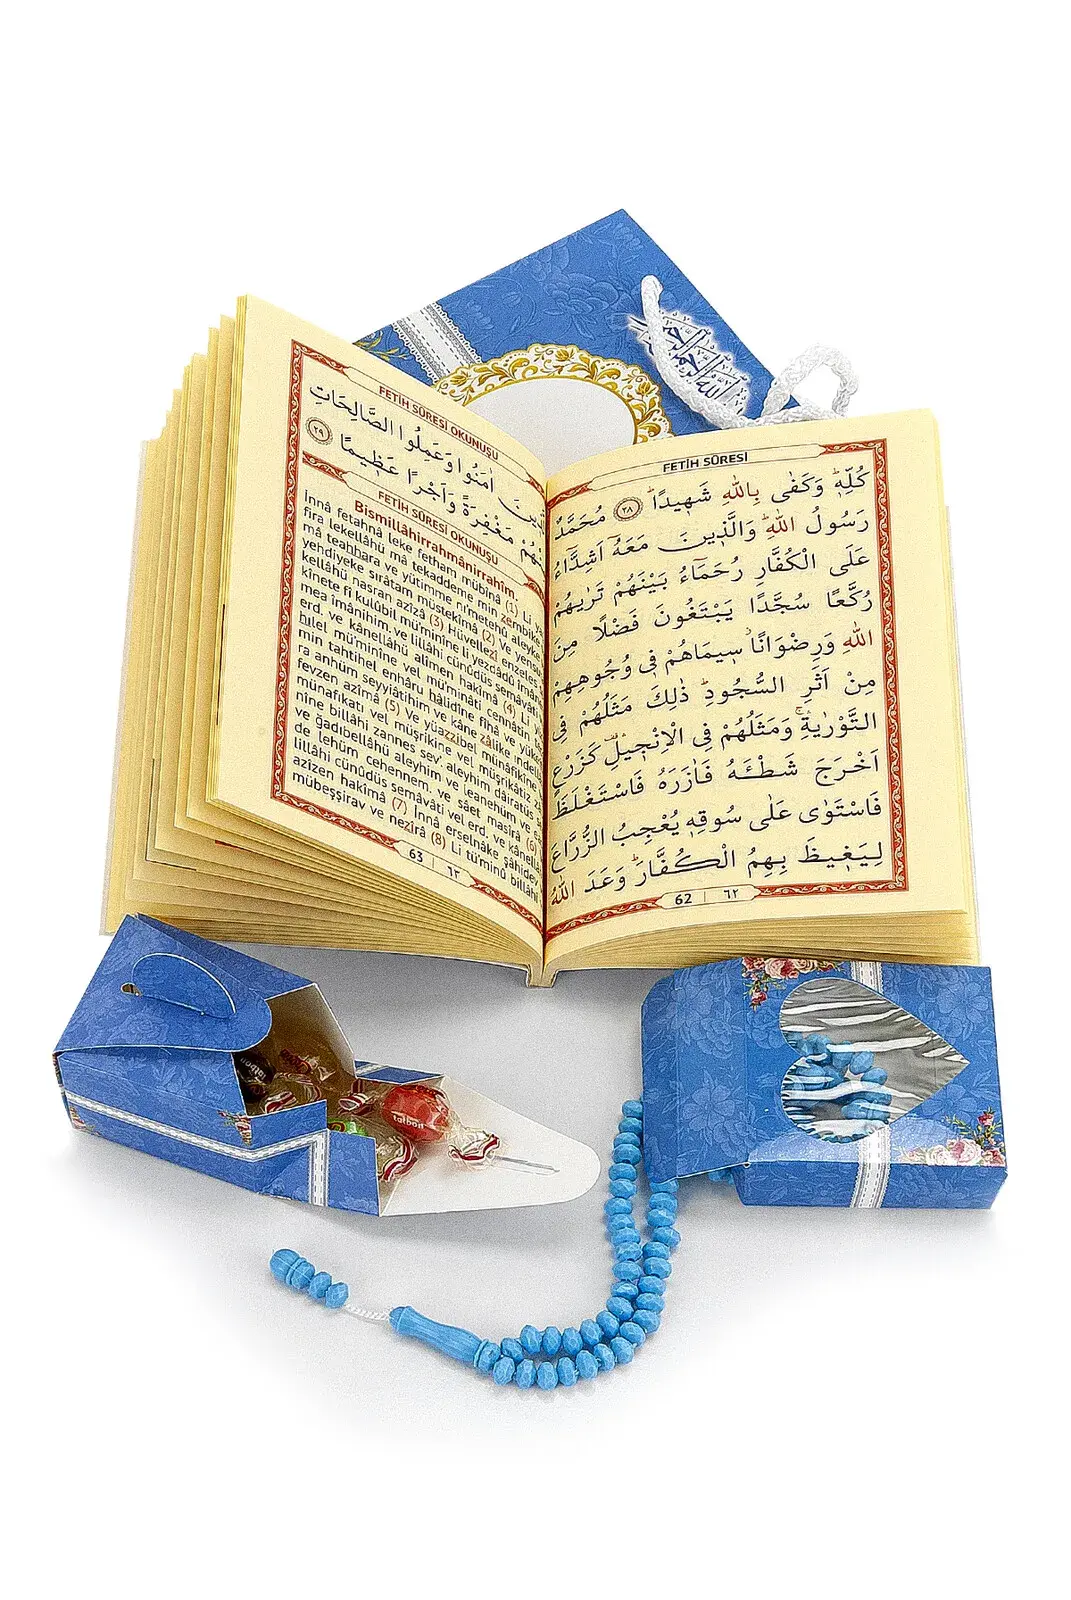 بِسْمِ اللّٰهِ الرَّحْمٰنِ الرَّحِيمِ
FETİH SÛRESİ
كُلِّهٖۜ وَكَفٰى بِاللّٰهِ شَهٖيدًاۜ ﴿٢٨﴾ مُحَمَّدٌ
رَسُولُ اللّٰهِۜ وَالَّذٖينَ مَعَهُٓ اَشِدَّٓاءُ
عَلَى الْكُفَّارِ رُحَمَٓاءُ بَيْنَهُمْ تَرٰيهُمْ
رُكَّعًا سُجَّدًا يَبْتَغُونَ فَضْلًا مِنَ
اللّٰهِ وَرِضْوَانًاۘ سٖيمَاهُمْ فٖى وُجُوهِهِمْ
مِنْ اَثَرِ السُّجُودِۜ ذٰلِكَ مَثَلُهُمْ فِى
التَّوْرٰيةِۚ وَمَثَلُهُمْ فِى الْاِنْجٖيلِ۠ كَزَرْعٍ
اَخْرَجَ شَطْـَٔهُ فَاٰزَرَهُ فَاسْتَغْلَظَ
فَاسْتَوٰى عَلٰى سُوقِهٖ يُعْجِبُ الزُّرَّاعَ
لِيَغٖيظَ بِهِمُ الْكُفَّارَۜ وَعَدَ اللّٰهُ
62 | ٦٢
FETİH SÛRESİ OKUNUŞU
اٰمَنُوا وَعَمِلُوا الصَّالِحَاتِ
مَغْفِرَةً وَاَجْرًا عَظٖيمًا ﴿٢٩﴾
FETİH SÛRESİ OKUNUŞU
Bismillâhirrahmânirrahîm.
İnnâ fetahnâ leke fetham mübînâ (1) Li
fira lekellâhü mâ tekaddeme min zembike
mâ teahhara ve yütimme ni'metehû aleyke
yehdiyeke sırâtam müstekîmâ (2) Ve
kellâhü nasran azîzâ (3) Hüvellezî enzeles
kînete fî kulûbil mü'minîne li yezdâdû
mea îmânihim, ve lillâhi cünûdüs semâvâti
erd, ve kânellâhü alîmen hakîmâ (4) Li
hılel mü'minîne vel mü'minâti cennâtin
min tahtihel enhâru hâlidîne fîhâ ve
ra anhüm seyyiâtihim ve kâne zâlike
fevzen azîmâ (5) Ve yüazzibel münâfikîne
münafikati vel müşrikîne vel müşrikâtiz
nîne billâhi zannes sev', aleyhim dâiratüs
ve ğadıbellâhü aleyhim ve leanehüm ve
de lehüm cehennem, ve sâet masîrâ (6)
lillâhi cünûdüs semâvâti vel erd, ve
azîzen hakîmâ (7) İnnâ erselnâke şâhidev
mübeşşirav ve nezîrâ (8) Li tü'minû billâhi
63 | ٦٣
talbon